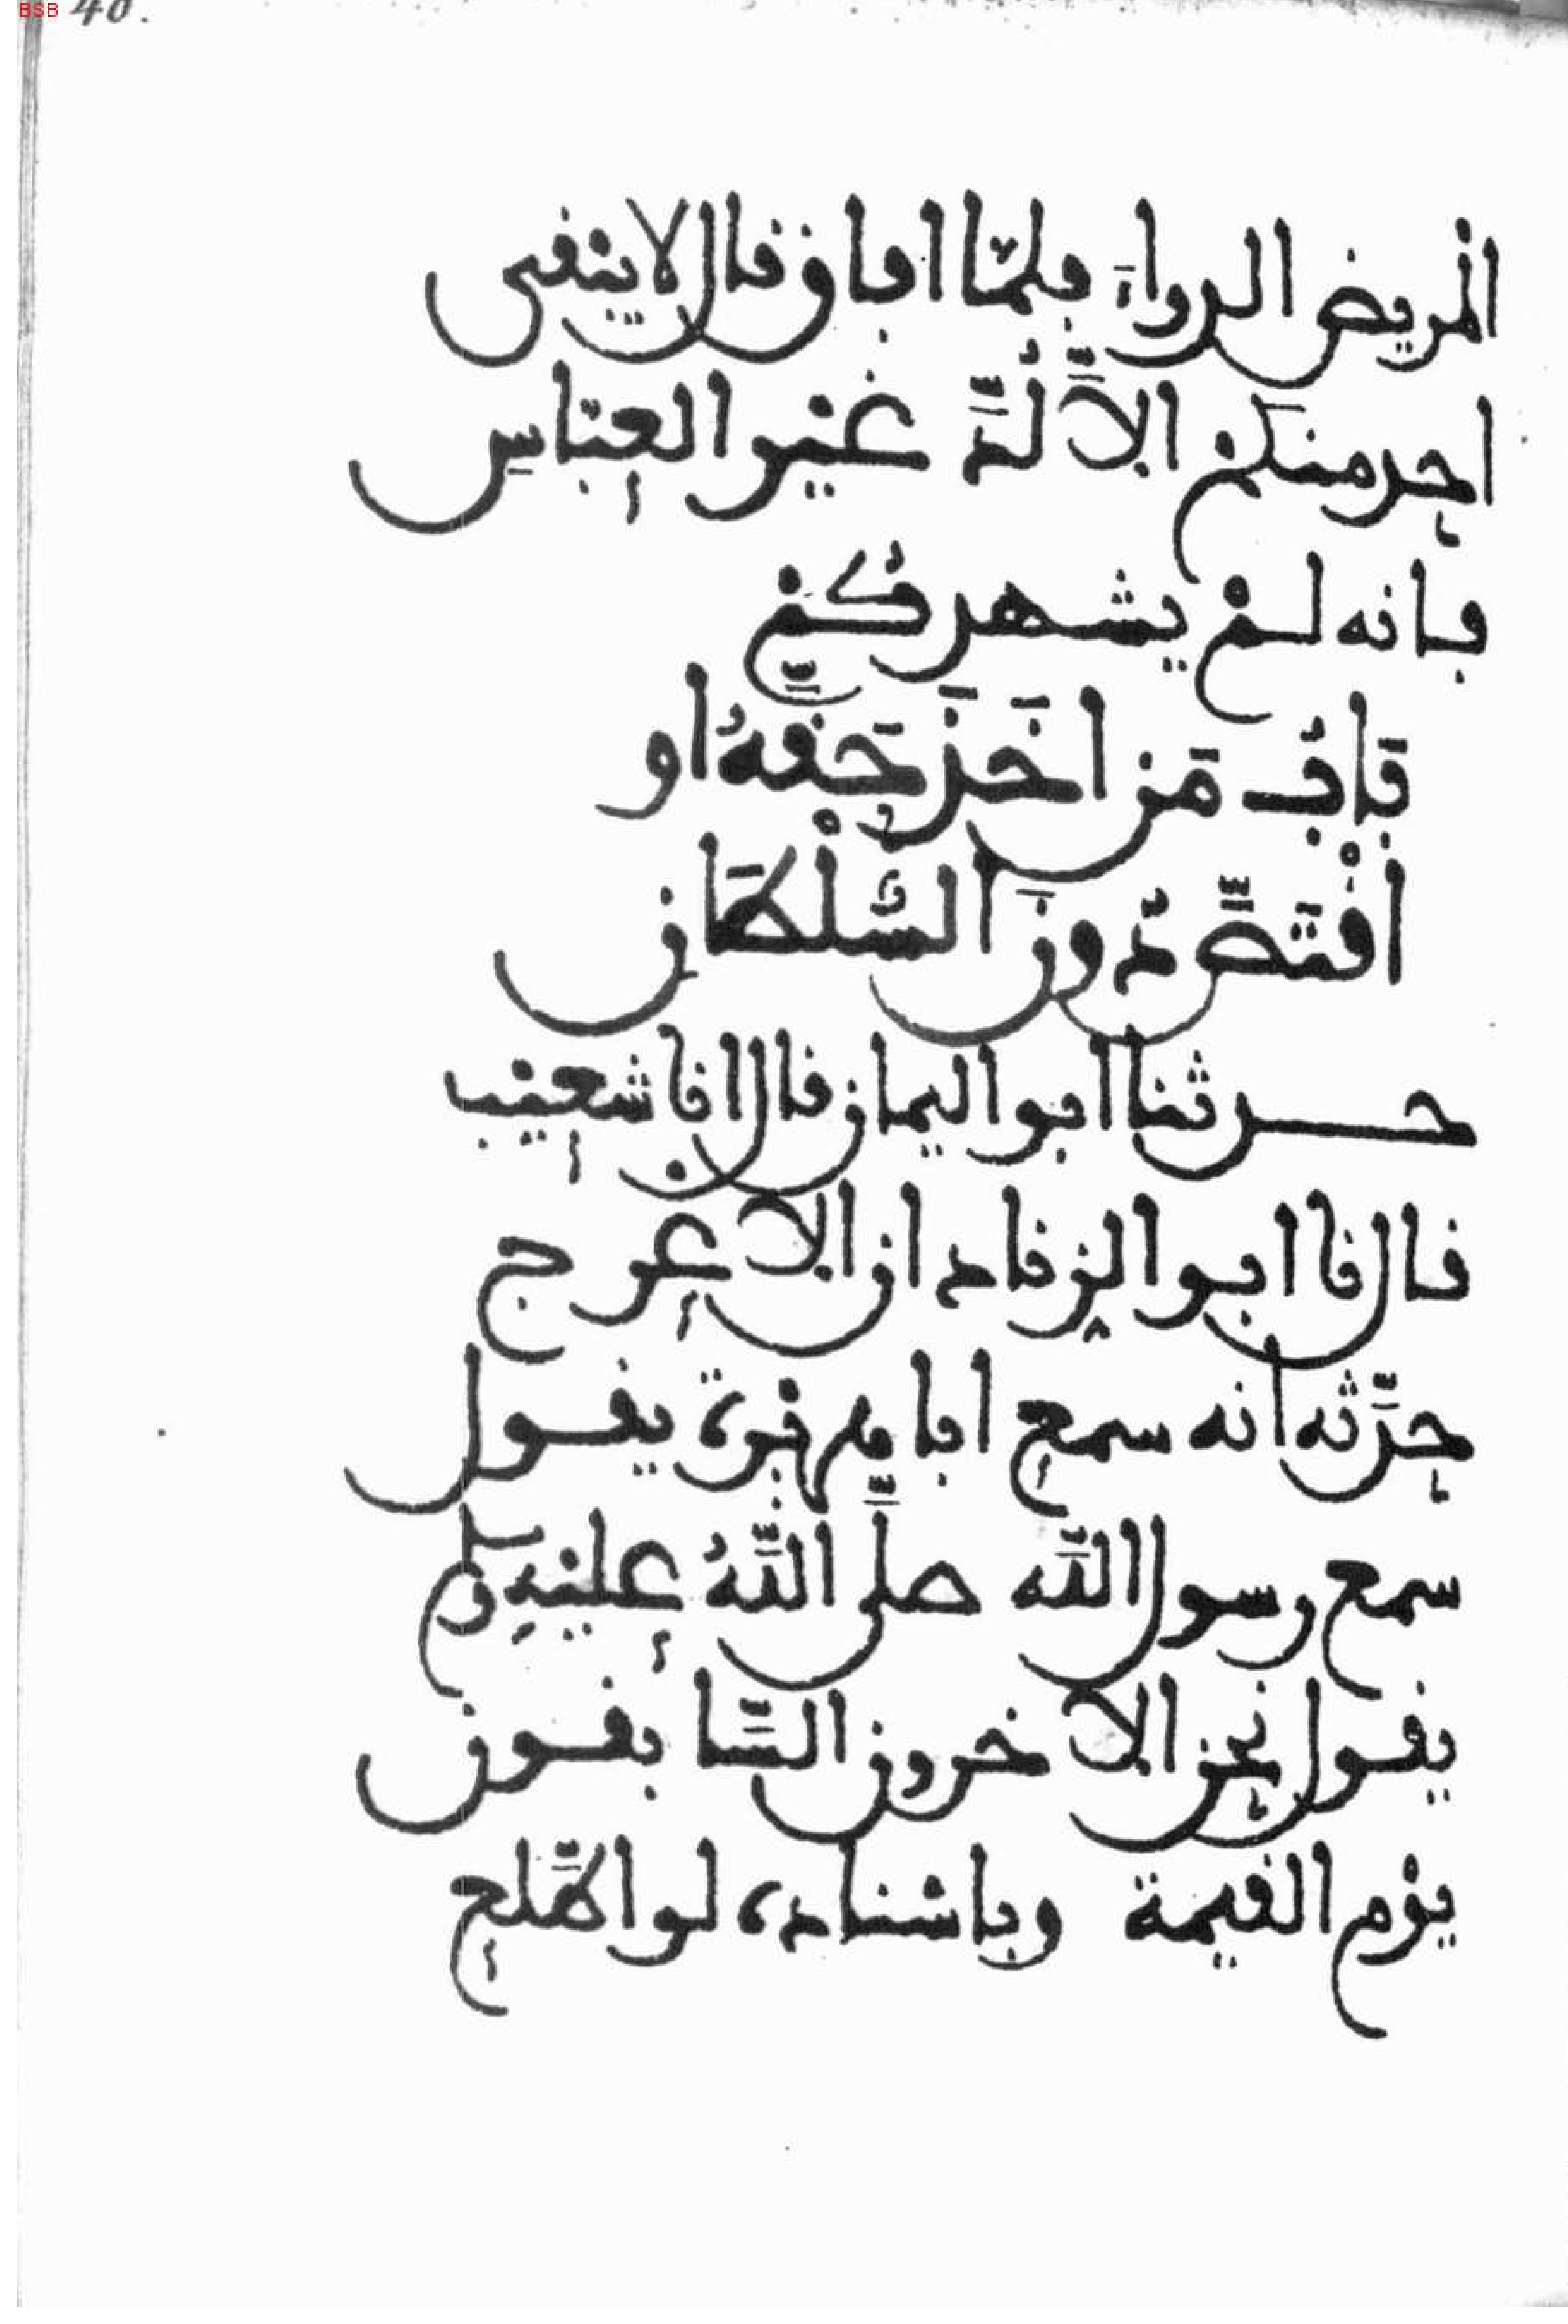 BSB 40.
المريض الدواء فلمّا افاق قال لا يبقى
احد منكم الّا لُدَّ غير العباس
فانه لم يشهدكم
بَابُ مَن اَخَذَ حَقَّهُ او
اقْتَصَّ دُونَ السُّلْطَانِ
حدثنا ابو اليمان قال انا شعيب
قال نا ابو الزناد ان الاعرج
حدَّثه انه سمع ابا هريرة يقول
سمع رسول الله صلَّى اللَّهُ عليهِ وسلم
يقول نحن الاخرون السَّابقون
يوم القيمة وباسناده لو اطَّلع